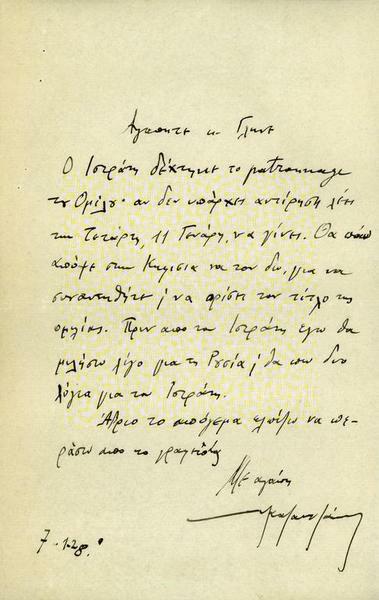 Αγαπητέ κ. Γληνέ
Ο Ιστράτη δέχτηκε το patronnage
του Ομίλου· αν δεν υπάρχει αντίρηση λέει
την Τετάρτη, 11 Γενάρη, να γίνει. Θα πάω
απόψε στην Κηφισιά να τον δω, για να
συναντηθήτε ; να ορίσει τον τίτλο της
ομιλίας. Πριν από τον Ιστράτη εγώ θα
μιλήσω λίγο για τη Ρυσία ; θα πω δυο
λόγια για τον Ιστράτη.
Αβριο το απόγεμα ελπίζω να πε-
ράσω από το γραφείο
Με αγάπη
Καζαντζάκη
7-1-28.